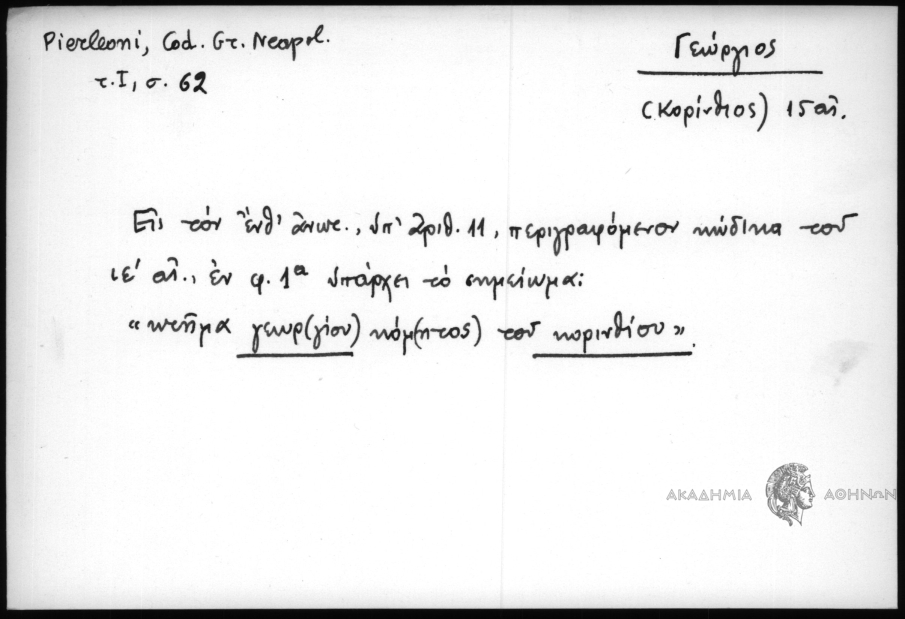 Pierleoni, Cod. Gr. Neapol.
τ. I, σ. 62
Γεώργιος
(Κορίνθιος) 15 αἰ.
Εἰς τὸν ἔνθ' ἀνωτ., ὑπ' ἀριθ. 11, περιγραφόμενον κώδικα τοῦ
ιε' αἰ., ἐν φ. 1α ὑπάρχει τὸ σημείωμα:
«κτῆμα γεωρ(γίου) κόμ(ητος) τοῦ κορινθίου».
ΑΚΑΔΗΜΙΑ ΑΘΗΝΩΝ